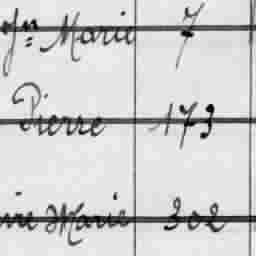 Jn Marie 7
Pierre 173
Marie 302